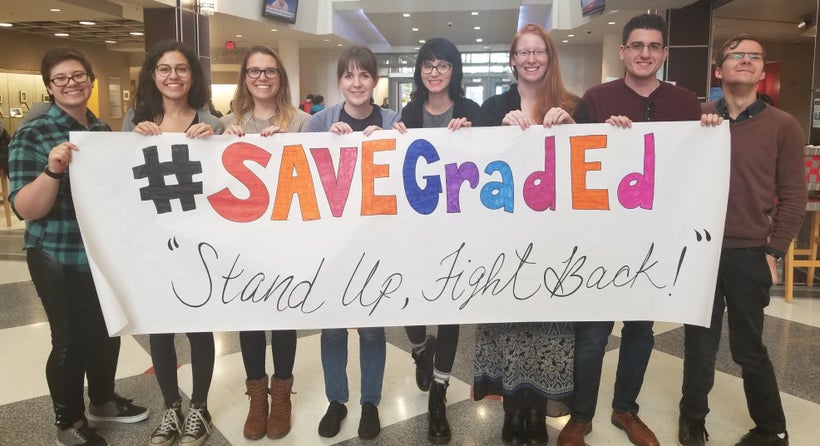 #SAVEGradEd
"Stand Up, Fight Back!"